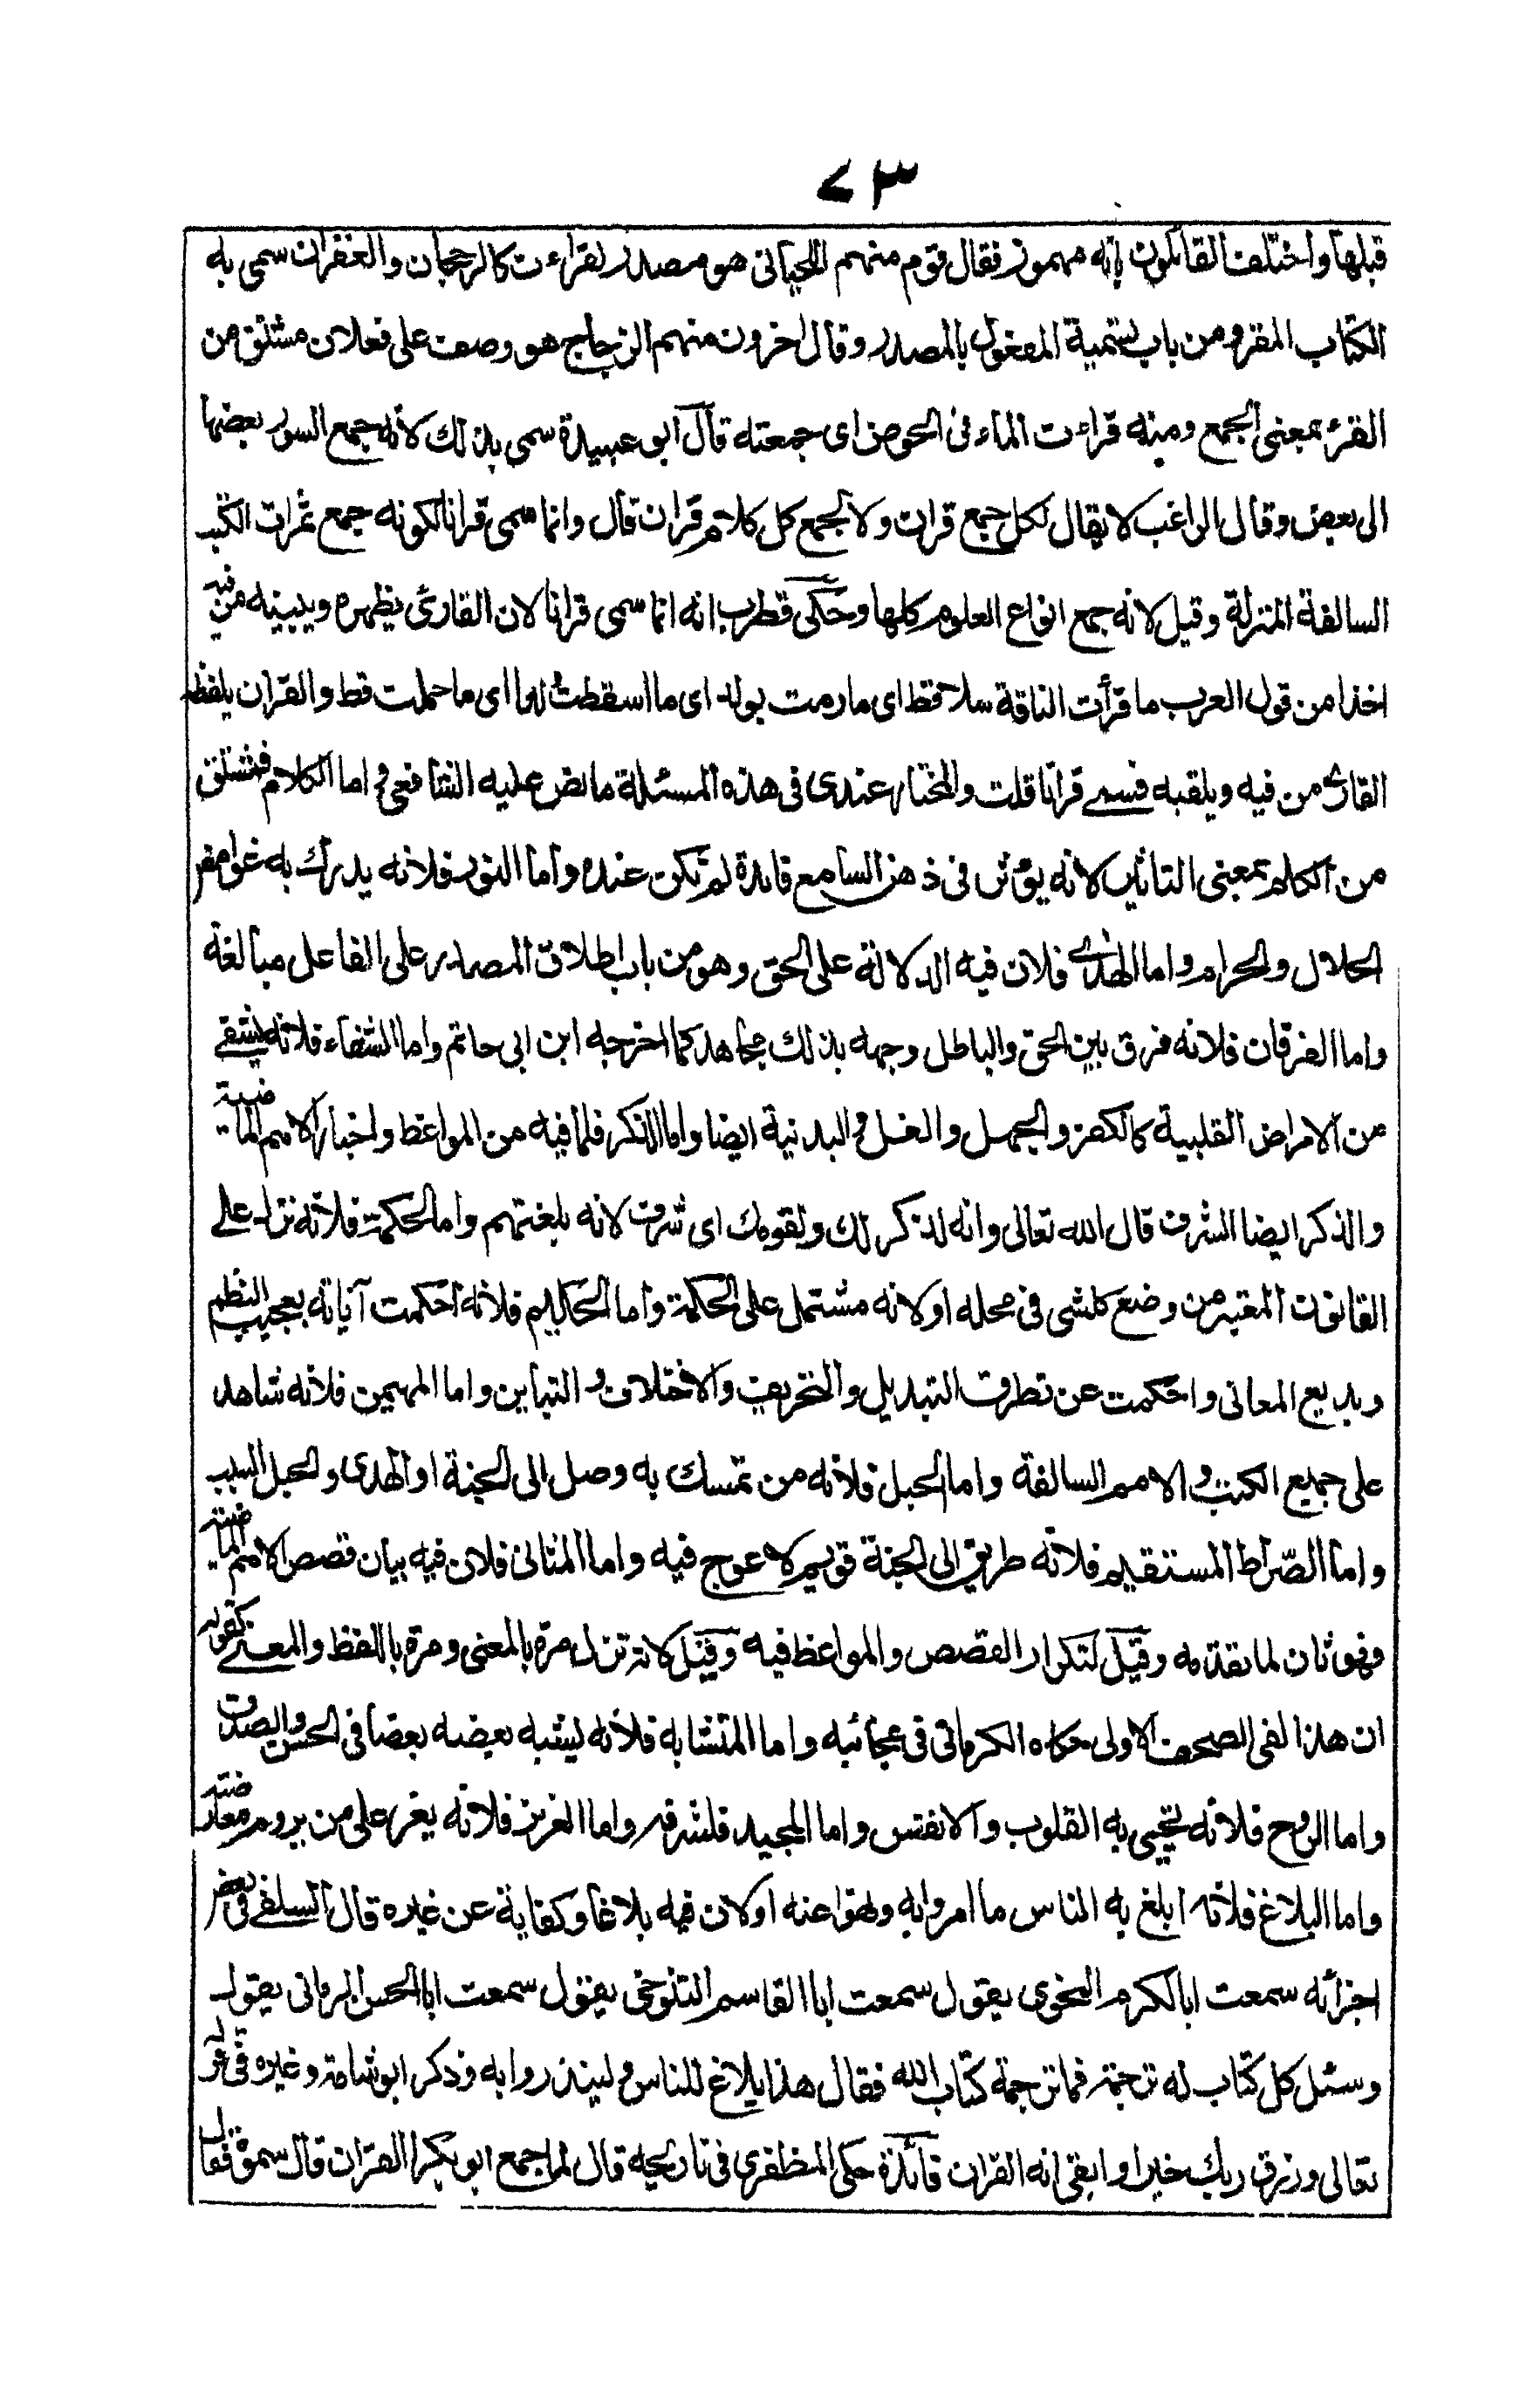 ٧٣
قبلها واختلف القائلون بانه مهموز فقال قوم منهم اللحيانى هو مصدر لقراءت كالرجحان والغفران سمى به
الكتاب المقرو من باب تسمية المفعول بالمصدر وقال اخرون منهم الزجاج هو وصف على فعلان مشتق من
القرء بمعنى الجمع ومنه قراءت الماء فى الحوض اى جمعته قال ابو عبيدة سمى بذلك لانه جمع السور بعضها
الى بعض وقال الراغب لا يقال لكل جمع قران ولا لجمع كل كلام قران قال وانما سمى قرانا لكونه جمع ثمرات الكتب
السالفة المنزلة وقيل لانه جمع انواع العلوم كلها وحكى قطرب انه انما سمى قرانا لان القارئ يظهره ويبينه من فيه
اخذا من قول العرب ما قرأت الناقة سلا قط اى ما رمت بولد اى ما اسقطت اى ما حملت قط والقران يلفظه
القارئ من فيه ويلقيه فسمى قرانا قلت والمختار عندى فى هذه المسئلة ما نص عليه الشافعى واما الكلام فمشتق
من الكلم بمعنى التاثير لانه يؤثر فى ذهن السامع فائدة لم تكن عنده واما النور فلانه يدرك به غوامض
الحلال والحرام واما الهدى فلان فيه الدلالة على الحق وهو من باب اطلاق المصادر على الفاعل مبالغة
واما الفرقان فلانه فرق بين الحق والباطل وجهه بذلك مجاهد كما اخرجه ابن ابى حاتم واما الشفاء فلانه يشفى
من الامراض القلبية كالكفر والجهل والغل والبدنية ايضا واما الذكر فلما فيه من المواعظ واخبار الامم الماضية
والذكر ايضا الشرف قال الله تعالى وانه لذكر لك ولقومك اى شرف لانه بلغتهم واما الحكمة فلانه نزل على
القانون المعتبر من وضع كلشى فى محله او لانه مشتمل على الحكمة واما الحكيم فلانه احكمت آياته بعجيب النظم
وبديع المعانى واحكمت عن تطرق التبديل والتحريف والاختلاف والتباين واما المهيمن فلانه شاهد
على جميع الكتب والامم السالفة واما الحبل فلانه من تمسك به وصل الى الجنة او الهدى والحبل السبب
واما الصراط المستقيم فلانه طريق الى الجنة قويم لا عوج فيه واما المثانى فلان فيه بيان قصص الامم الماضية
فهو ثان لما تقدمه وقيل لتكرار القصص والمواعظ فيه وقيل لانه نزل مرة بالمعنى ومرة باللفظ والمعنى كقوله
ان هذا لفى الصحف الاولى حكاه الكرمانى فى عجائبه واما المتشابه فلانه يشبه بعضه بعضا فى الحسن والصدق
واما الروح فلانه تحيى به القلوب والانفس واما المجيد فلشرفه واما العزيز فلانه يعز على من يروم معارضته
واما البلاغ فلانه ابلغ به الناس ما امروا به ونهوا عنه او لان فيه بلاغا وكفاية عن غيره قال السلفى فى بعض
اجزائه سمعت ابا الكرم النحوى يقول سمعت ابا القاسم التنوخى يقول سمعت ابا الحسن الرمانى يقول
وسئل كل كتاب له ترجمة فما ترجمة كتاب الله فقال هذا بلاغ للناس ولينذروا به وذكر ابو شامة وغيره فى قوله
تعالى ورزق ربك خير وابقى انه القران فائدة حكى المظفرى فى تاريخه قال لما جمع ابو بكر القران قال سموه فقال